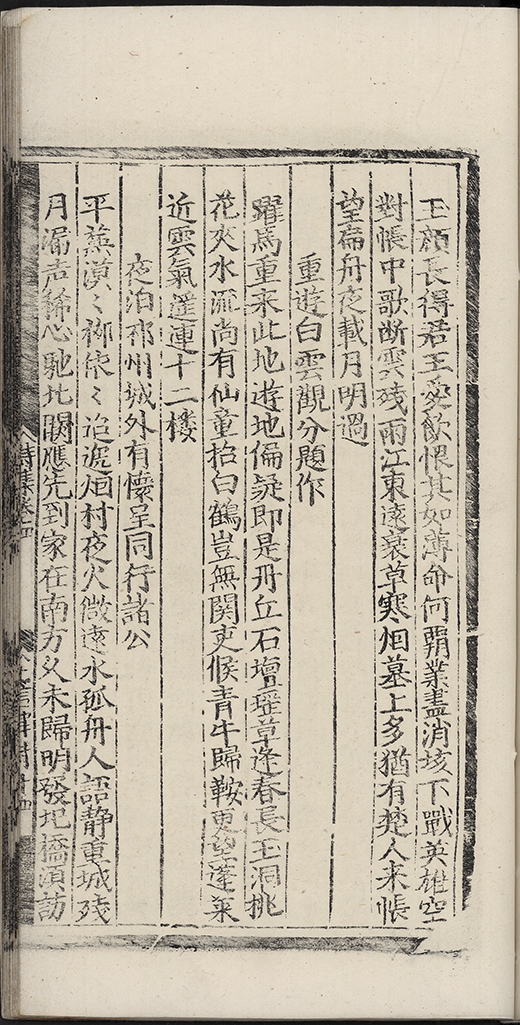 玉顔長得君王愛飲恨其如薄命何覇業盡消垓下戰英雄空
對帳中歌断雲残雨江東遠衰草寒烟墓上多猶有楚人来帳
望扁舟夜載月明過
重遊白雲觀分題作
躍馬重来此地遊地偏疑即是丹丘石壇瑶草逢春長玉洞桃
花夾水流尚有仙童招白鶴豈無関吏候青牛歸鞍更望蓬莱
近雲氣遥連十二樓
夜泊邳州城外有懐呈同行諸公
平蕪漠〻柳依〻迢逓烟村夜火微遠水孤舟人語静重城残
月漏声稀心馳北闕應先到家在南方久未歸明發圯橋須訪
詩集卷四